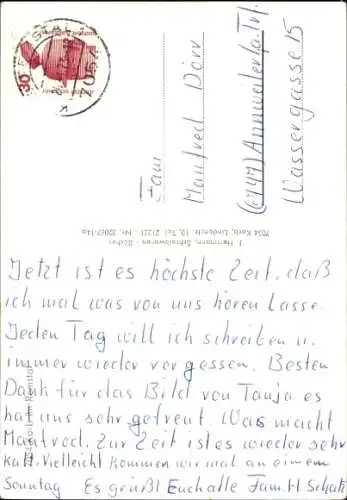 30
Fam
Manfred Dörr
(6747) Annweiler/a. Trf.
Wassergasse 15
J. Herrmann, Schreibwaren - Bücher
7034 Kark, Lindenstr. 10, Tel. 21221 - Nr. 32067-146
Jetzt ist es höchste Zeit, daß
ich mal was von uns hören lasse.
Jeden Tag will ich schreiben u.
immer wieder vergessen. Besten
Dank für das Bild von Tanja es
hat uns sehr gefreut. Was macht
Manfred. Zur Zeit ist es wieder sehr
kalt. Vielleicht kommen wir mal an einem
Sonntag Es grüßt Euch alle Fam. H Schatz